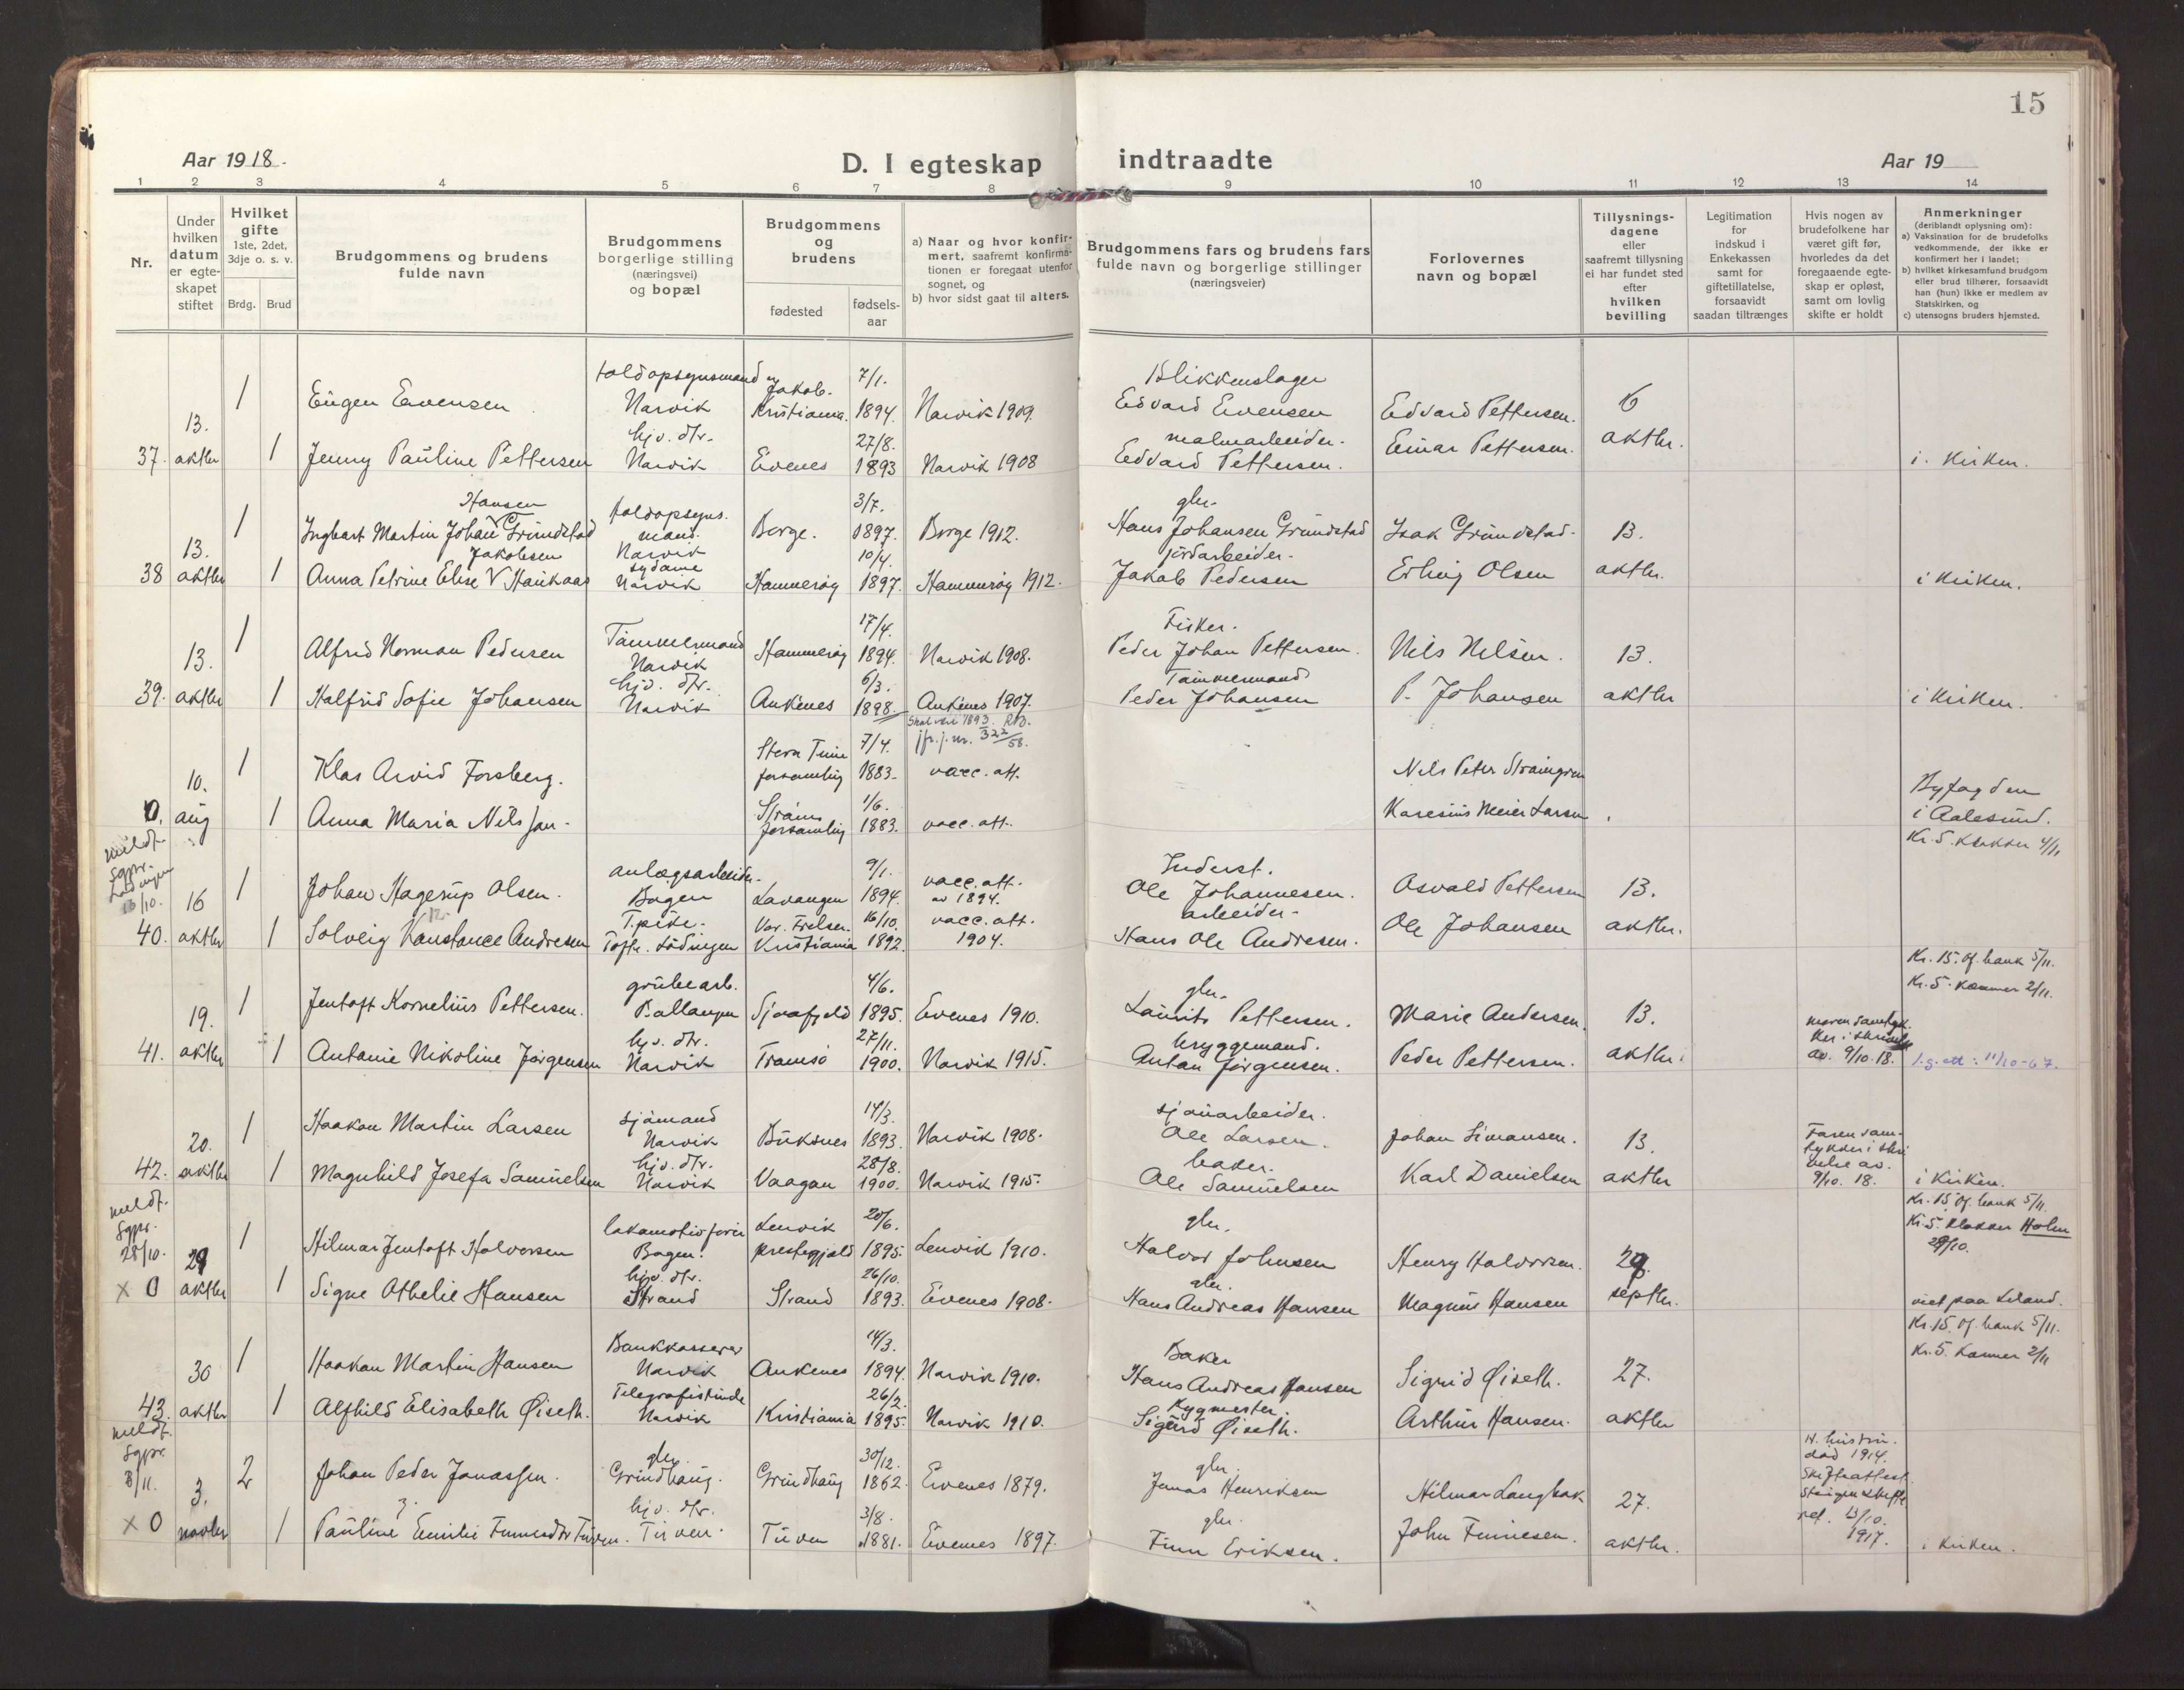 15
Aar 1918.
D. I egteskap indtraadte
Aar 19
1 2 3 4 5 6 7 8 9 10 11 12 13 14
Nr.
Under hvilken datum er egte-skapet stiftet
Hvilket gifte
1ste, 2det, 3dje o. s. v.
Brdg. Brud
Brudgommens og brudens fulde navn
Brudgommens borgerlige stilling (næringsvei) og bopæl
Brudgommens og brudens
fødested
fødsels-aar
a) Naar og hvor konfir-mert, saafremt konfirma-tionen er foregaat utenfor sognet, og
b) hvor sidst gaat til alters.
Brudgommens fars og brudens fars fulde navn og borgerlige stillinger (næringsveier)
Forlovernes navn og bopæl
Tillysnings-dagene eller saafremt tillysning ei har fundet sted efter hvilken bevilling
Legitimation for indskud i Enkekassen samt for giftetillatelse, forsaavidt saadan tiltrænges
Hvis nogen av brudefolkene har været gift før, hvorledes da det foregaaende egte-skap er opløst, samt om lovlig skifte er holdt
Anmerkninger (deriblandt oplysning om):
a) Vaksination for de brudefolks vedkommende, der ikke er konfirmert her i landet;
b) hvilket kirkesamfund brudgom eller brud tilhører, forsaavidt han (hun) ikke er medlem av Statskirken, og
c) utensogns bruders hjemsted.
toldopsynsmand Jakob. 7/1. Blikkenslager
1 Eugen Evensen Narvik Kristiania. 1894. Narvik 1909. Edvard Evensen Edvard Pettersen. 6
13. hjv. dtr. 27/8. malmarbeider.
37. oktbr 1 Jenny Pauline Pettersen Narvik Evenes 1893 Narvik 1908 Edvard Pettersen. Einar Pettersen. oktbr. i Kirken.
Hansen toldopsyns. 3/7. gbr.
1 Ingbart Martin Johan Grundstad mand. Borge. 1897. Borge 1912. Hans Johansen Grundstad Isak Grundstad. 13.
13. Jakobsen Narvik 10/4. jordarbeider.
38 oktbr 1 Anna Petrine Elise V Haukaas sydame Narvik Hammerøy 1897. Hammerøy 1912. Jakob Pedersen Erling Olsen oktbr. i Kirken.
17/4. Fisker.
1 Alfred Norman Pedersen Tømmermand Narvik Hammerøy 1894. Narvik 1908. Peder Johan Pettersen. Nils Nilsen. 13.
13. hjv. dtr. 6/3. Tømmermand
39. oktbr 1 Halfrid Sofie Johansen Narvik Ankenes 1898. Ankenes 1907. Peder Johansen P. Johansen oktbr i Kirken.
Skal være 1893. R.D.
jfr. j. nr. 322/58.
1 Klas Arvid Forsberg. Stora Tuna forsamling 7/4. 1883. vacc. att. Nils Peter
10. 1/6. Byfogden
0. aug 1 Anna Maria Nilsson. forsamling 1883. vacc. att. Karesius Meier Larsen i Aalesund.
meldt. Kr. 5. klokker 4/11
sgpr. Lødingen 16/10. anlægsarbeider. 9/1. vacc. att. Inderst.
1 Johan Hagerup Olsen. Bogen Lavangen 1894. av 1894. Ole Johannesen. Osvald Pettersen 13.
16 T.pike. Vor. Frelser. 16/10. vacc. att. arbeider.
40. oktbr 1 Solveig Konstance Andresen Lødingen Kristiania 1892. 1904. Hans Ole Andresen. Ole Johansen oktbr.
Kr. 15. Of. bank 5/11.
grubearb. 4/6. gbr. Kr. 5. Kanner 2/11.
1 Jentoft Kornelius Pettersen. Ballangen Sjaafjeld 1895. Evenes 1910. Laurits Pettersen. Marie Andersen. 13.
19. hjv. dtr. 27/11. bryggemand. moren samtyk-ker i skriv. av. 9/10.18.
41. oktbr 1 Antonie Nikoline Jørgensen Narvik Tromsø 1900. Narvik 1915. Anton Jørgensen. Peder Pettersen. oktbr. l.g. att: 11/10-67.
sjømand 14/3. sjauarbeider.
1 Haakon Martin Larsen Narvik Buksnes 1893. Narvik 1908. Ole Larsen. Johan Simonsen. 13.
20. hjv. dtr. 28/8. baker. Faren sam-tykker i skri-velse av. 9/10. 18.
42. oktbr 1 Magnhild Josefa Samuelsen Narvik Vaagan 1900. Narvik 1915. Ole Samuelsen Karl Danielsen oktbr i Kirken.
meldt. sgpr. 28/10. Kr. 15. Of. bank 5/11.
lokomotivfører Lenvik 20/6. gbr. Kr. 5. klokker Holm 29/10.
1 Hilmar Jentoft Halvorsen Bogen. prestegjeld 1895. Lenvik 1910. Halvor Johnsen Henry Halvorsen. 29.
29 hjv. dtr. 26/10. gbr.
x 0 oktbr 1 Signe Othelie Hansen Strand Strand 1893. Evenes 1908. Hans Andreas Hansen Magnus Hansen septbr. viet paa Liland.
Kr. 15. Of. bank 5/11.
Bankkasserer 14/3. Baker Kr. 5. Kanner 2/11
1 Haakon Martin Hansen Narvik Ankenes 1894. Narvik 1910. Hans Andreas Hansen Sigrid Øiseth. 27.
30 Telegrafistinde 26/2. Bygmester.
43. oktbr 1 Alfhild Elisabeth Øiseth. Narvik Kristiania 1895. Narvik 1910. Sigurd Øiseth. Arthur Hansen. oktbr
meldt. sgpr. 8/11. gbr. 30/12. gbr. H. hustru. død 1914.
2 Johan Peder Jonassen. Grindhaug. Grindhaug 1862. Evenes 1879. Jonas Henriksen Hilmar Langbak 27. Skifteattest
3. hjv. dtr. 3/8. gbr. 13/10. 1917.
x 0 novbr 1 Pauline Emilie Tuven. Tuven. Tuven 1881. Evenes 1897. Finn Eriksen. John Finnesen. oktbr. i Kirken.